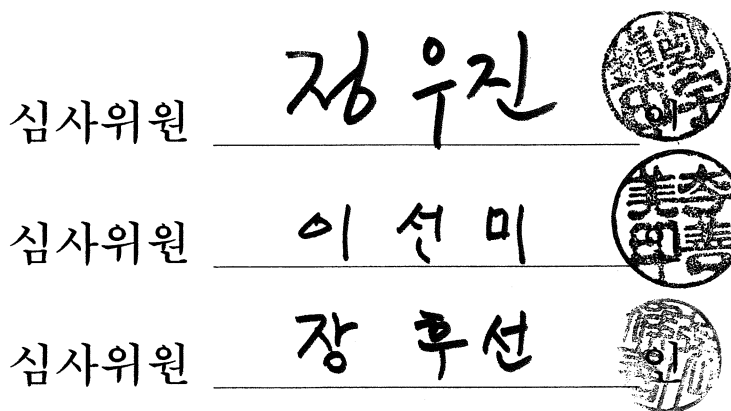 심사위원 정우진 인
심사위원 이선미 인
심사위원 장후선 인